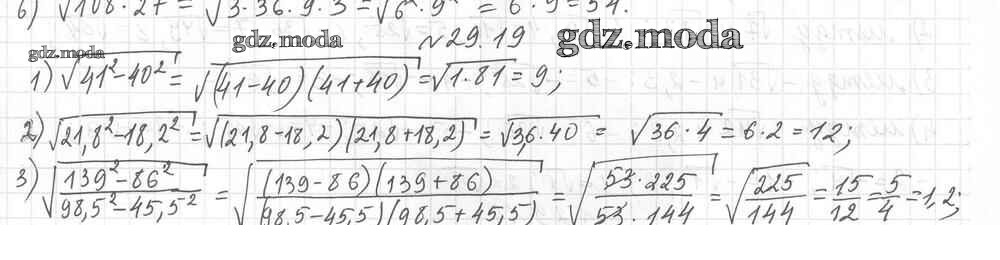 6) √108·27 = √3·36·9·3 = √6²·9² = 6·9=54.
gdz.moda gdz.moda №29.19 gdz.moda
1) √41²-40² = √(41-40)(41+40) = √1·81 = 9;
2) √21,8²-18,2² = √(21,8-18,2)(21,8+18,2) = √3,6·40 = √36·4 = 6·2 = 12;
3) √139²-86²/98,5²-45,5² = √(139-86)(139+86)/(98,5-45,5)(98,5+45,5) = √53·225/53·144 = √225/144 = 15/12 = 5/4 = 1,2;